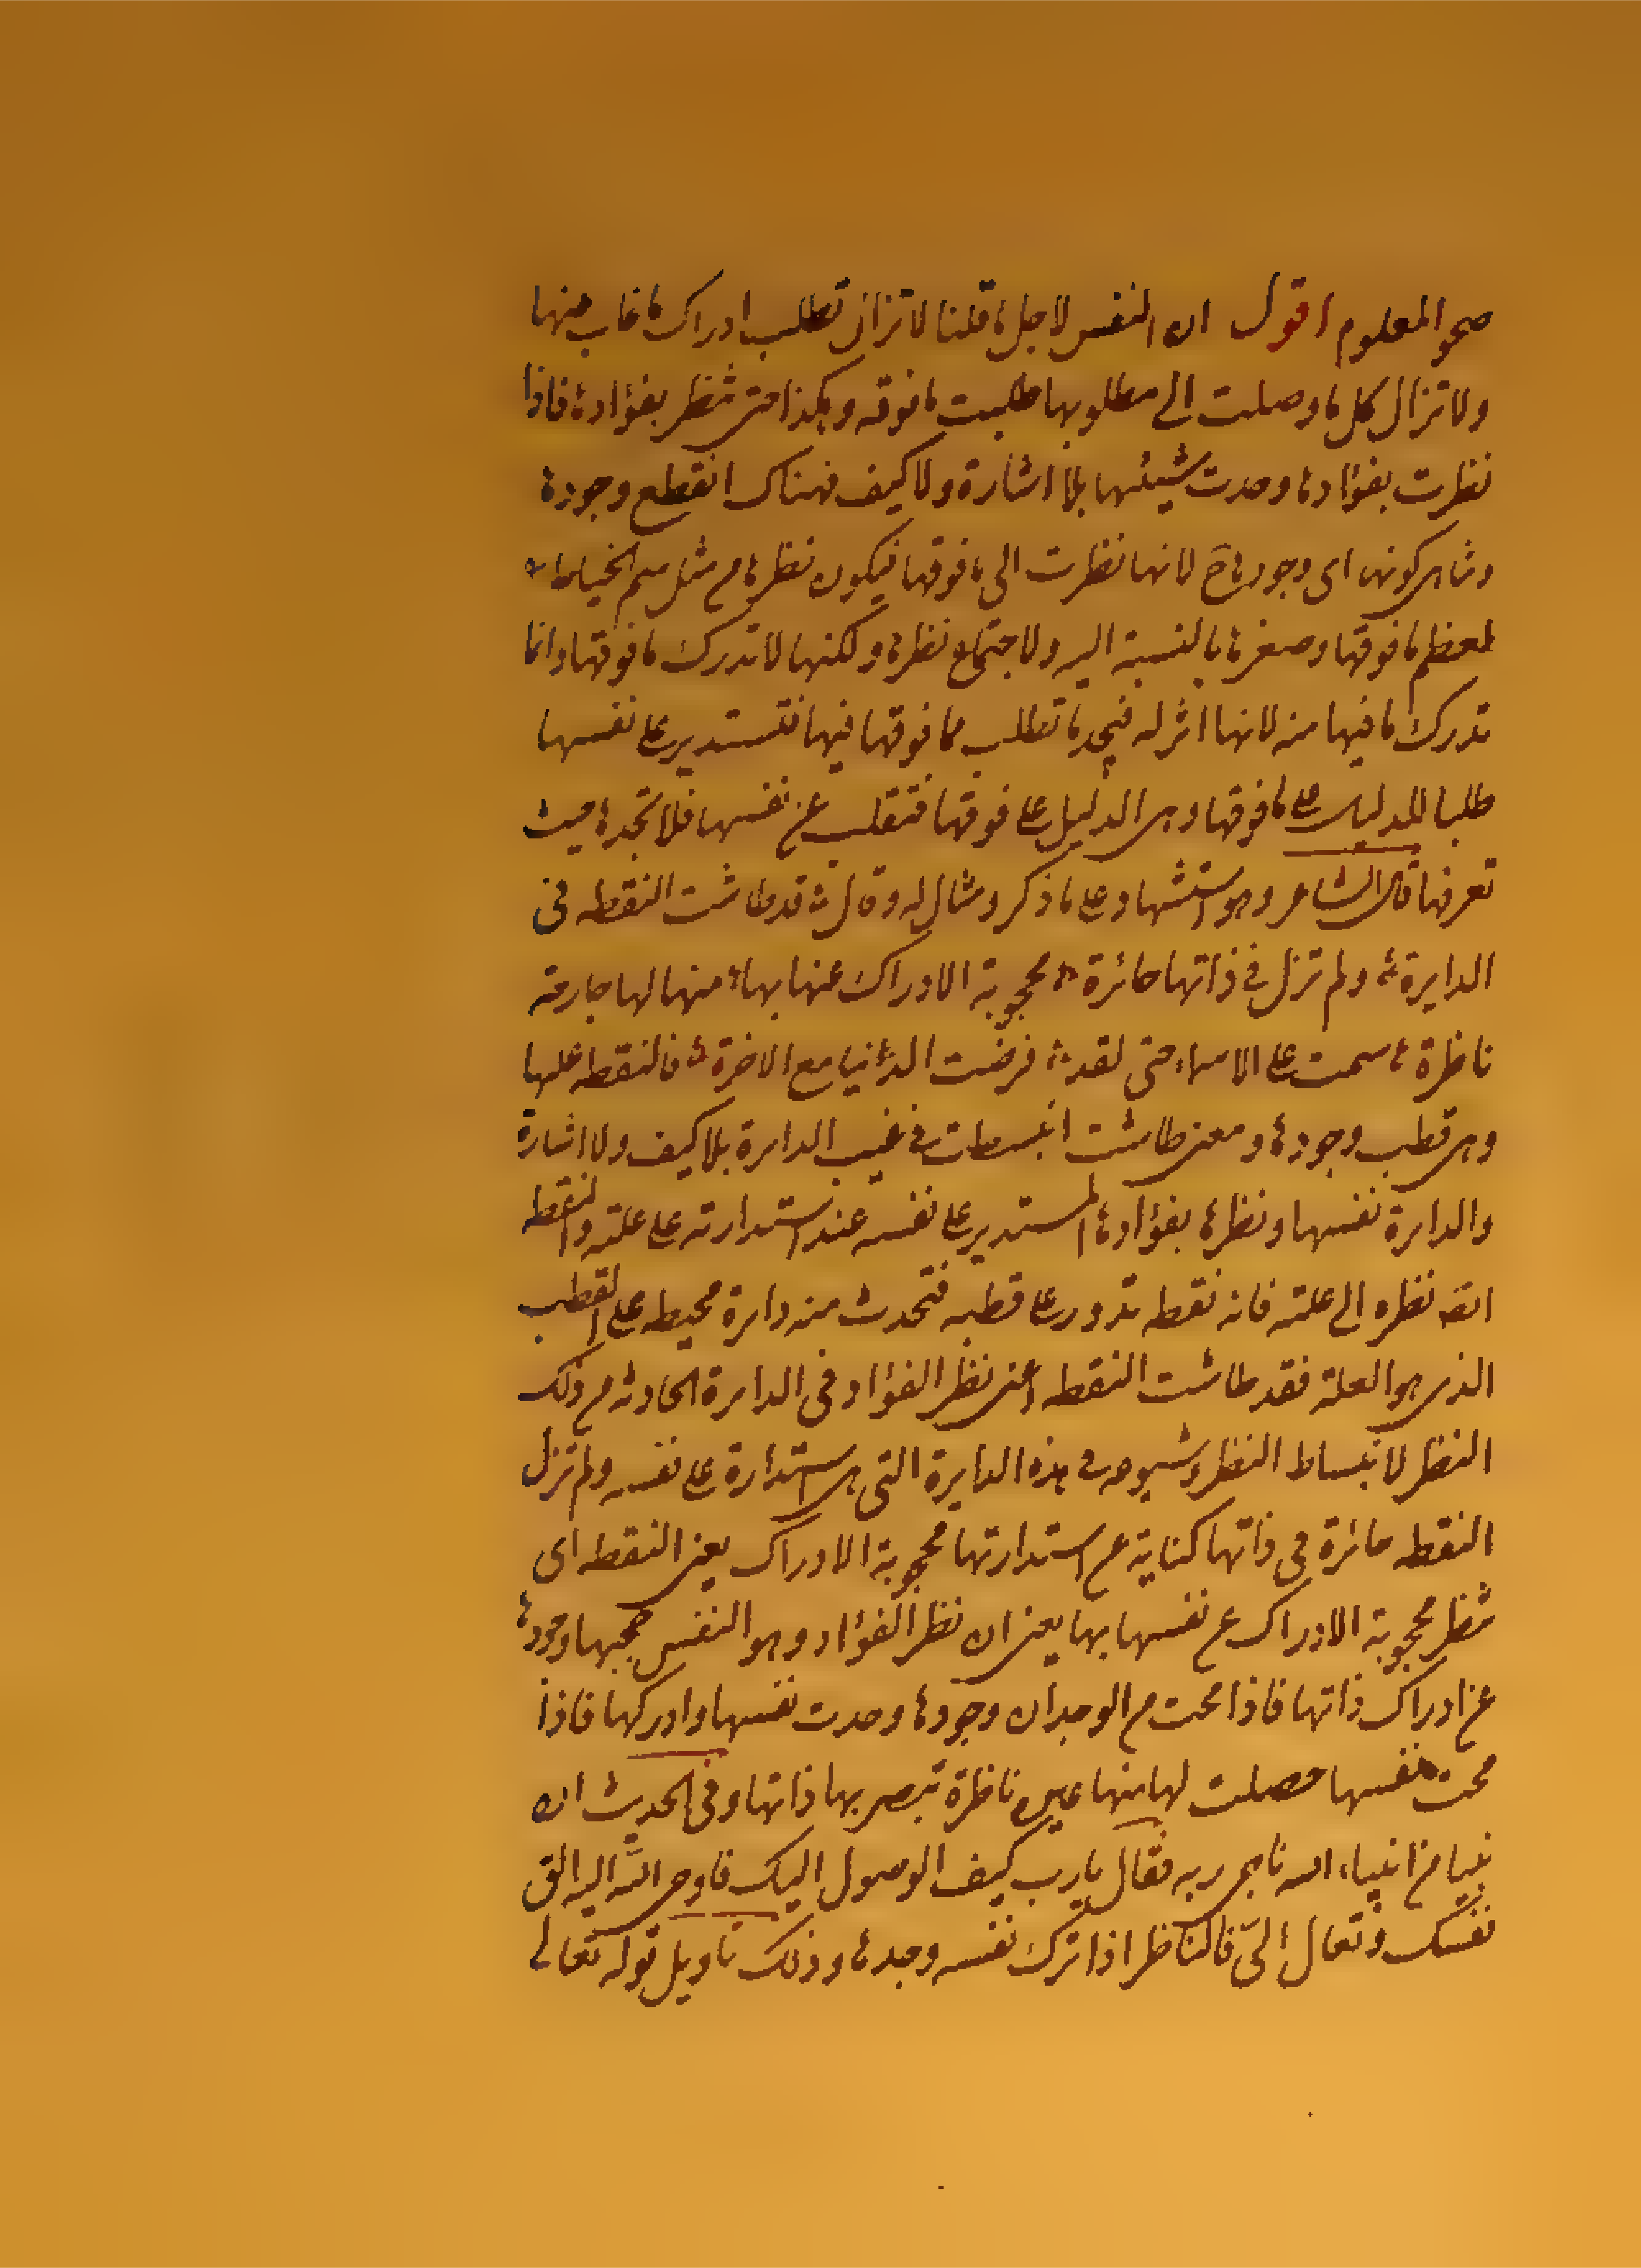 صحو المعلوم اقول ان النفس لاجل ما قلنا لا تزال تطلب ادراك ما غاب عنها
ولا تزال كل ما وصلت الى مطلوبها طلبت ما فوقه وهكذا حتى تنظر بفؤادها فاذا
نظرت بفؤادها وجدت شيئها بلا اشارة ولا كيف فهناك انقطع وجودها
اى وجودها لانها نظرت الى ما فوقها فيكون نظرها مثل سم الخياط
لعظم ما فوقها وصغرها بالنسبة اليه ولاجتماع نظرها ولكنها لا تدرك ما فوقها وانما
تدرك ما فيها منه لانها اثر له فتجد ما تطلب مما فوقها فيها فتستدير على نفسها
طلبا للدليل على ما فوقها وهى الدليل على فوقها فتقلب عن نفسها فلا تجدها حيث
تعرفها قال الشاعر وهو استشهاد على ما ذكر ومثال له وقال قد طاشت النقطه فى
الدايرة ولم تزل في ذاتها حائرة محجوبة الادراك عنها بها منها لها جارحة
ناظرة سمت على الاسماء حتى لقد فوضت الدنيا مع الاخرة فالنقطه علتها
وهى قطب وجودها ومعنى طاشت انبسطت في غيب الدايرة بلا كيف ولا اشارة
والدايرة نفسها ونظرها بفؤادها المستدير على نفسه عند استدارته على علته والنقطه
ايضا نظره الى علته فانه نقطه تدور على قطبه فتحدث منه دايرة محيطه على القطب
الذى هو العلة فقد طاشت النقطه اعنى نظر الفؤاد فى الدايرة الحادثه من ذلك
النظر لانبساط النظر وشيوعه في هذه الدايرة التى هى استدارة على نفسه ولم تزل
النقطه حائرة فى ذاتها كناية عن استدارتها محجوبة الادراك يعنى النقطه اى
تنظر محجوبة الادراك عن نفسها بها يعنى ان نظر الفؤاد وهو النفس حجبها وجودها
عن ادراك ذاتها فاذا محت من الوجدان وجودها وجدت نفسها وادركها فاذا
محت نفسها حصلت لها منها عين ناظرة تبصر بها ذاتها وفى الحديث ان
نبيا من انبياء الله ناجى ربه فقال يا رب كيف الوصول اليك فاوحى الله اليه الق
نفسك وتعال الىّ فالناظر اذا ترك نفسه وجدها وذلك تاويل قوله تعالى